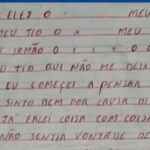 MEU
MEU TIO O MEU
IRMÃO O
TIO QUI NÃO ME DEIX
EU COMEÇEI A PENSAR
SINTO BEM POR CAUSA DI
JÁ FALEI COISA COM COISA
NÃO SENTIA VONTADE DE